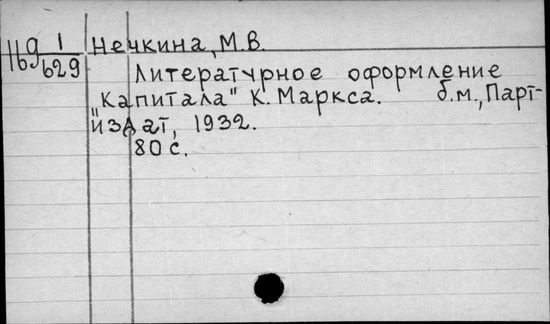 169 1/629 Нечкина, М.В.
Литературное оформление
"Капитала" К. Маркса. б.м., Парт-
издат, 1932.
80 с.